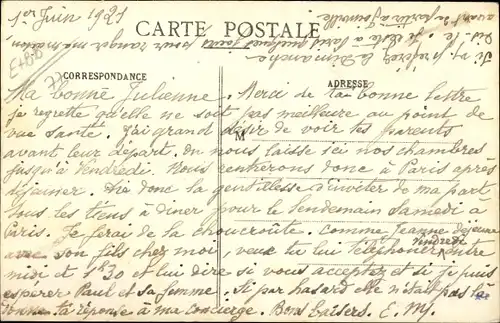 1er Juin 1921
CARTE POSTALE
CORRESPONDANCE
ADRESSE
M
Ma bonne Julienne. Merci de ta bonne lettre
je regrette qu'elle ne soit pas meilleure au point de
vue santé. J'ai grand désir de voir tes parents
avant leur départ. On nous laisse ici nos chambres
jusqu'à Vendredi. Nous rentrerons donc à Paris après
déjeuner. Aie donc la gentillesse d'inviter de ma part
tous les tiens à diner pour le lendemain Samedi à
Paris. Je ferai de la choucroute. Comme Jeanne déjeune
avec son fils chez moi, veux tu lui téléphoner Vendredi entre
midi et 1h30 et lui dire si vous acceptez et si je puis
espérer Paul et sa femme. Si par hasard elle n'était pas là
donne ta réponse à ma concierge. Bons baisers. E. M.
Si tu préfères le Dimanche
dis le. Je reste à Paris quelques jours pour ranger ma maison
avant de partir à Joinville